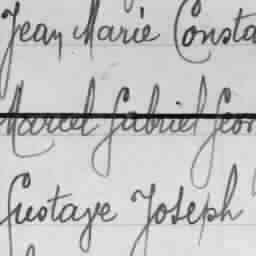 Jean Marie Consta
Marcel Gabriel Geor
Gustave Joseph